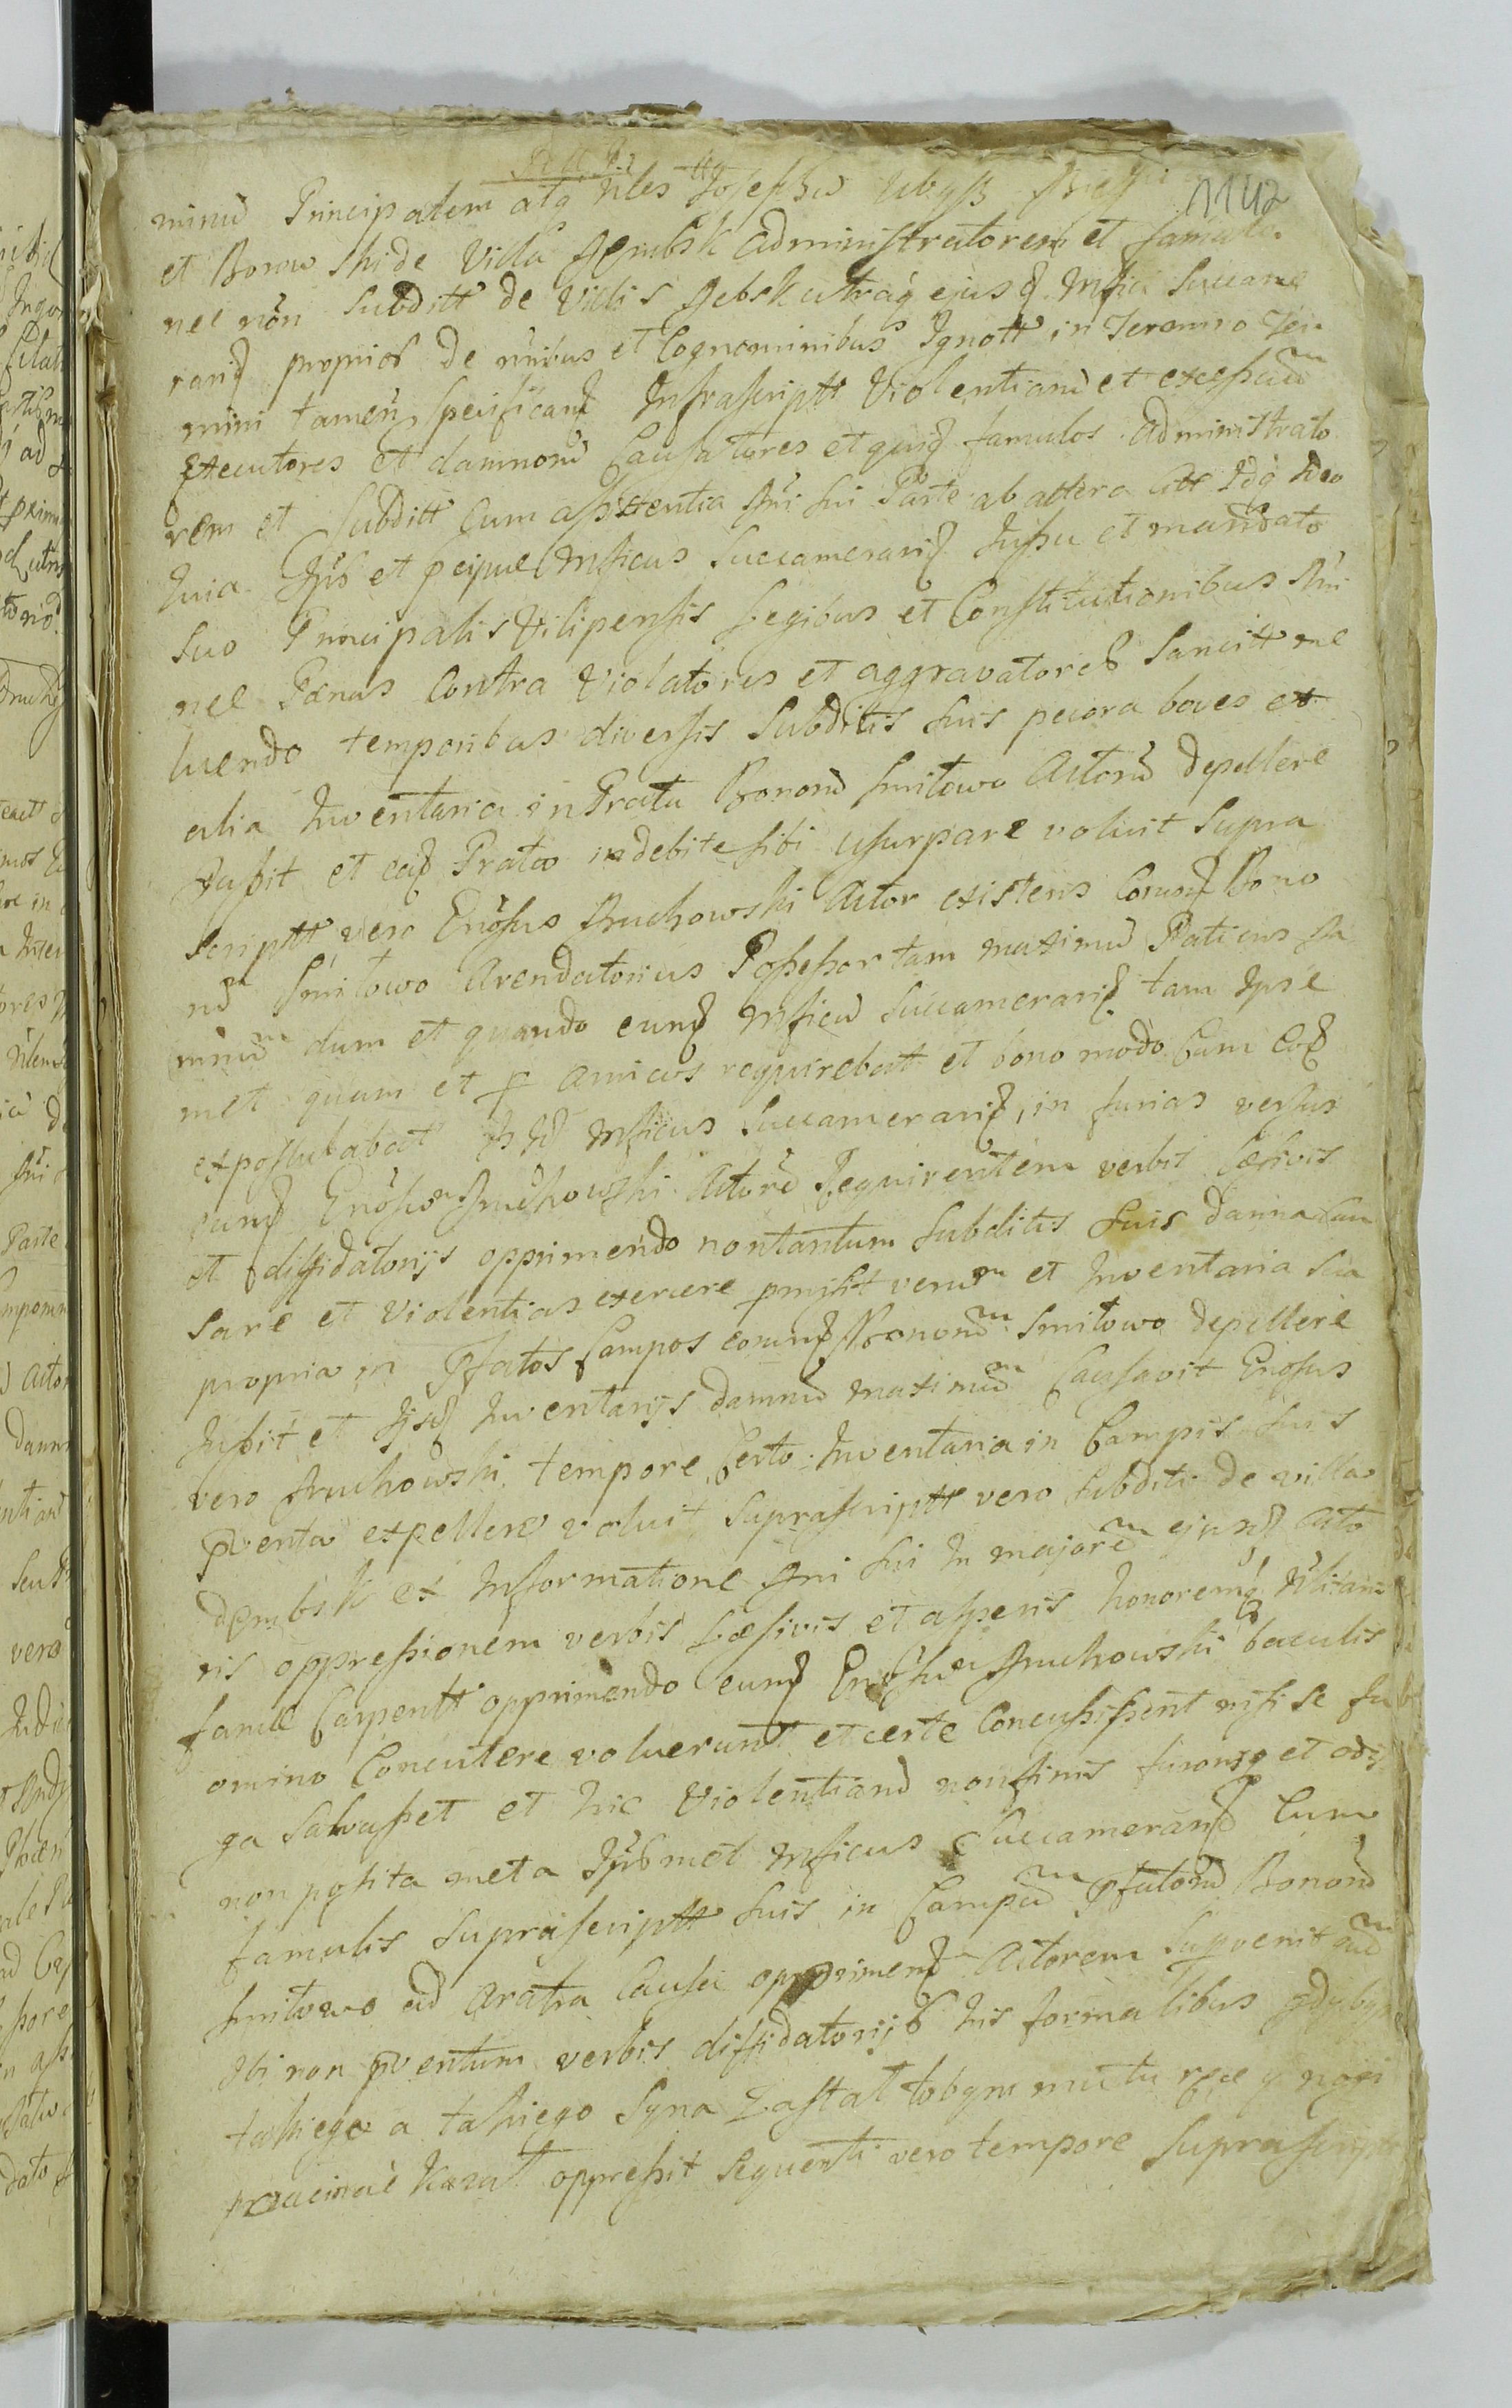 1142
minū Principalem atq Nles Josephū
et Borow ski de Villa Dembsk Administratorem et famulū
nec non Subditt de Villis Debsk utraq ejusd Mfici Succame
rarij proprios de nūibus et Cognominibus Ignott in Termino Ter
mini tamen specificand Infrascriptt Violentiarū et excessuū
Executores et damnorū Causatores et quid famulos Administrato
rem et Subditt Cum assistentia Dni sui Parte ab altera Att Idq ideo
quia Ijsd et pcipue Mficus Succamerarij Jussu et mandato
suo Principalis Vilipensis Legibus et Constitutionibus Rni
nec Pænas Contra Violatores et aggravatores Sancitt me
tuendo temporibus diversis Subditis suis pecora boves et
alia Inventaria in Prata Bonorū Smiłowo Actorū depellere
Jussit et ead Prata indebite sibi usurpare voluit Supra
scriptt vero Gnosus Bruchowski Actor existens Corund Bono
rū Smiłowo Arendatorius Possessor tam maximū Patiens Da
mnū dum et quando eund Mficū Succamerarij tam Ipse
met quam et p amicos requirebat et bono modo Cum Eod
expostulabat Mficus Succamerarij, in furias versus
eund Gnosū Bruchowski Actorē Requirentem verbis Læsivis
et diffidatorijs opprimendo non tantum Subditis Suis damna Cau
sare et Violentias exercere pmisit verū et Inventaria sua
propria in Pfatos Campos eorund Bonorū Smiłowo depellere
Jussit et Ijsd Inventarijs damnū maximū Causavit Gnosus
vero Bruchowski tempore Certo Inventaria in Campis suis
pventa expellere voluit, Suprascriptt vero Subditi de villa
Dembsk ex Informatione Dni sui In majorē ejusd Acto
ris oppressionem verbis Læsivis et asperis honoremq Nlitaris
famæ Carpentt opprimendo eund Gnosū Bruchowski baculis
omino Concutere voluerunt et certe Concussissent nisi se fu
ga Salvasset et hic Violentiarū non finis furorisq et odij
non posita meta Ipsemet Mficus Succamerarij Cum
famulis Suprascriptt suis in Campū Pfatorū Bonorū
Smiłowo ad Aratra Causa opprimend Actorem Supvenit quē
Ibi non pventum verbis diffidatorijs his formalibus gdybym
takiego a takiego Syna Zastał tobym mu tu ręce y nogi
poucinać kazał oppressit Sequenti vero tempore Suprascriptt